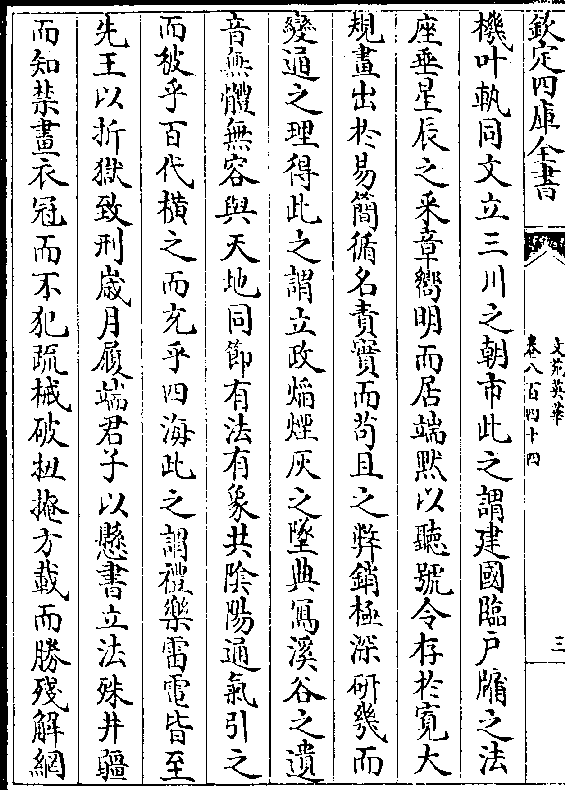 欽定四庫全書
文苑英華
卷八百四十四
三
機叶軌同文立三川之朝市此之謂建國臨戶牖之法
座垂星辰之采章嚮明而居端黙以聽號令存於寛大
規畫出於易簡循名責實而茍且之弊銷極深研幾而
變通之理得此之謂立政煽煙灰之墜典冩溪谷之遺
音無體無容與天地同節有法有象共隂陽通氣引之
而被乎百代橫之而充乎四海此之謂禮樂雷電皆至
先王以折獄致刑嵗月履端君子以懸書立法殊井疆
而知禁畫衣冠而不犯疏械破杻掩方載而勝殘解網